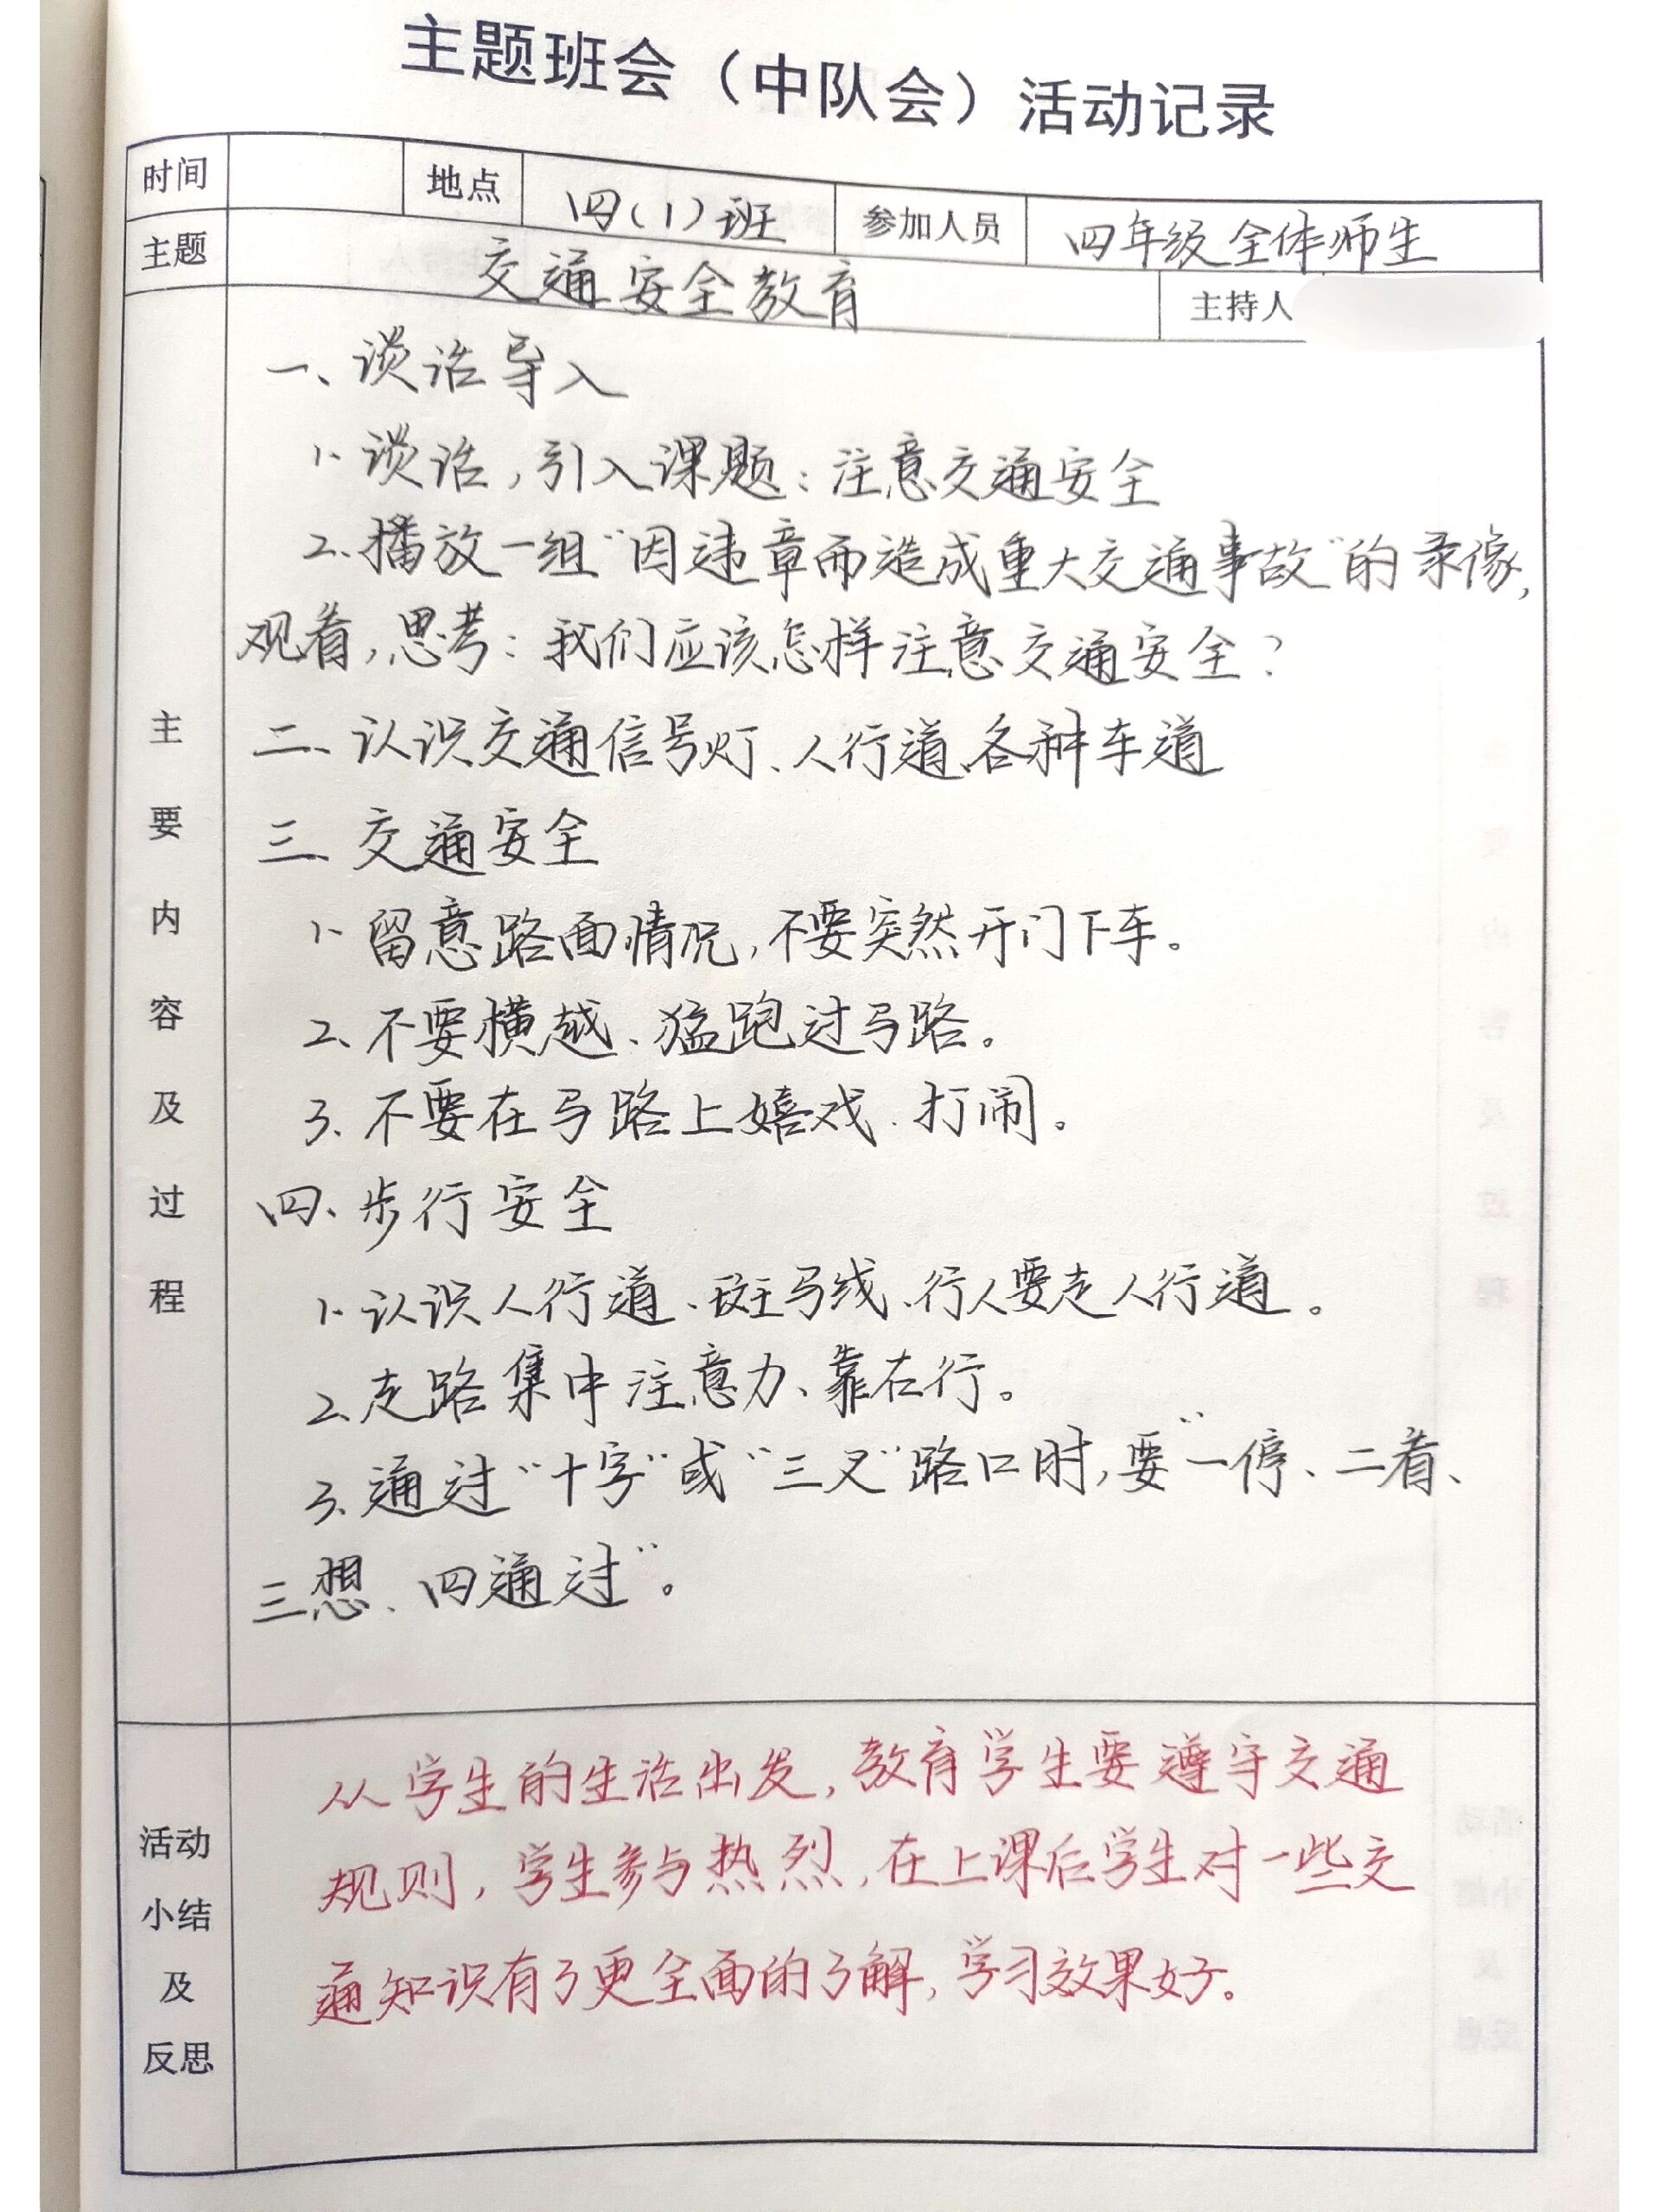 主题班会（中队会）活动记录
时间 地点 四（1）班 参加人员 四年级全体师生
主题 交通安全教育 主持人
主要内容及过程
一、谈话导入
1.谈话,引入课题：注意交通安全
2.播放一组“因违章而造成重大交通事故”的录像,
观看,思考：我们应该怎样注意交通安全?
二、认识交通信号灯、人行道、各种车道
三、交通安全
1.留意路面情况,不要突然开门下车。
2、不要横越、猛跑过马路。
3、不要在马路上嬉戏、打闹。
四、步行安全
1.认识人行道、斑马线、行人要走人行道。
2、走路集中注意力、靠右行。
3、通过“十字”或“三叉”路口时,要“一停、二看、
三想、四通过”。
活动
小结
及
反思
从学生的生活出发,教育学生要遵守交通
规则,学生参与热烈,在上课后学生对一些交
通知识有了更全面的了解,学习效果好。